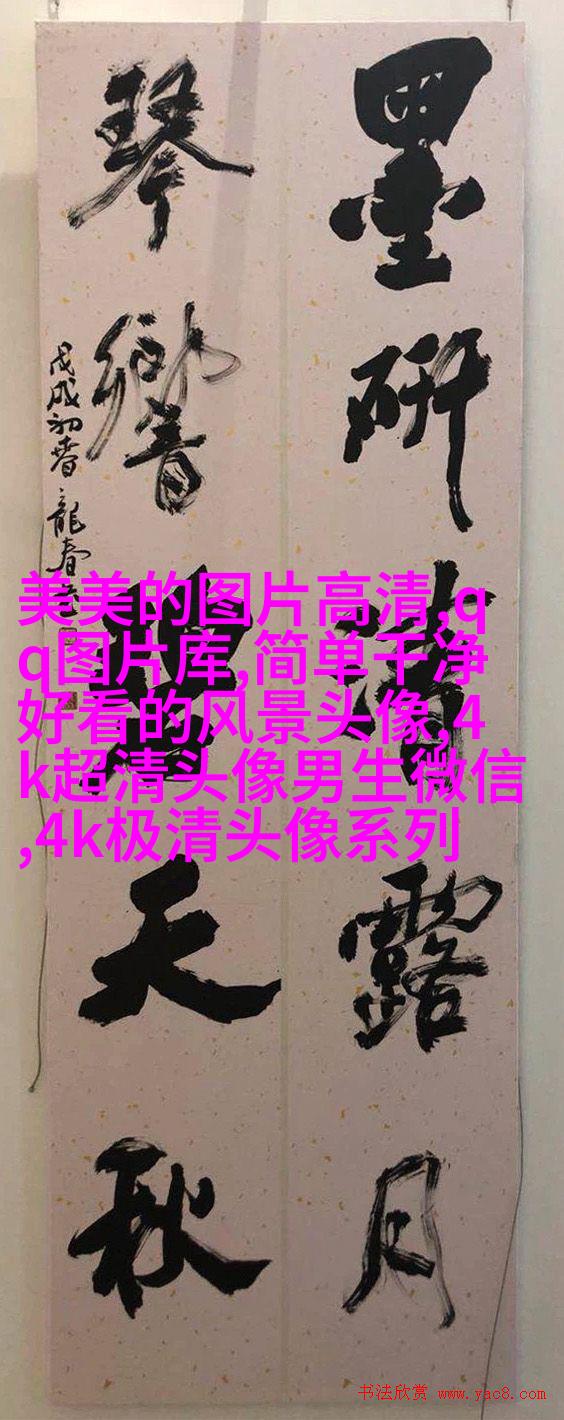 墨研清露月
琴響碧天秋
戊戌初春龍春
美美的图片高清,q
q图片库,简单干净
好看的风景头像,4
k超清头像男生微信
,4k极清头像系列
书法欣赏 www.yac8.com